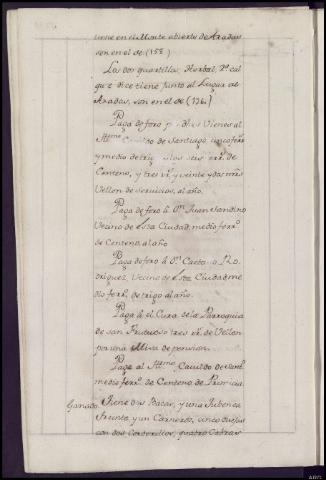 tiene en el Monte abierto de Aradas
son en el de (158)
Las dos quartillas, Herbal, 2ª cal
que dice tiene junto al Lugar de
Aradas, son en el de (176)
Paga de foro p dhos Vienes al
Yttmo Cavildo de Santiago, un ferrº
y medio de trigo y los seis ferrs de
Centeno, y tres rrs y veinte y dos mrs
Vellon de servicios, al año
Paga de foro â Dn Juan Sandino
Vecino de esta Ciudad, medio ferrº
de Centeno, al año
Paga de foro â Dn Caetano Ro
driguez, Vecino de esta Ciudad me
dio ferrº de trigo al año.
Paga â el Cura de la Parroquia
de san Frutuoso tres rrs de Vellon
por una Misa de pension
Paga al Yttmo Cavildo de Santº
medio ferrº de Centeno de Primicia
Ganado Tiene dos Bacas, y una Jubenca
Treinta, y un Carneros, cinco Ovejas
con dos Corderillos, quatro Cabras